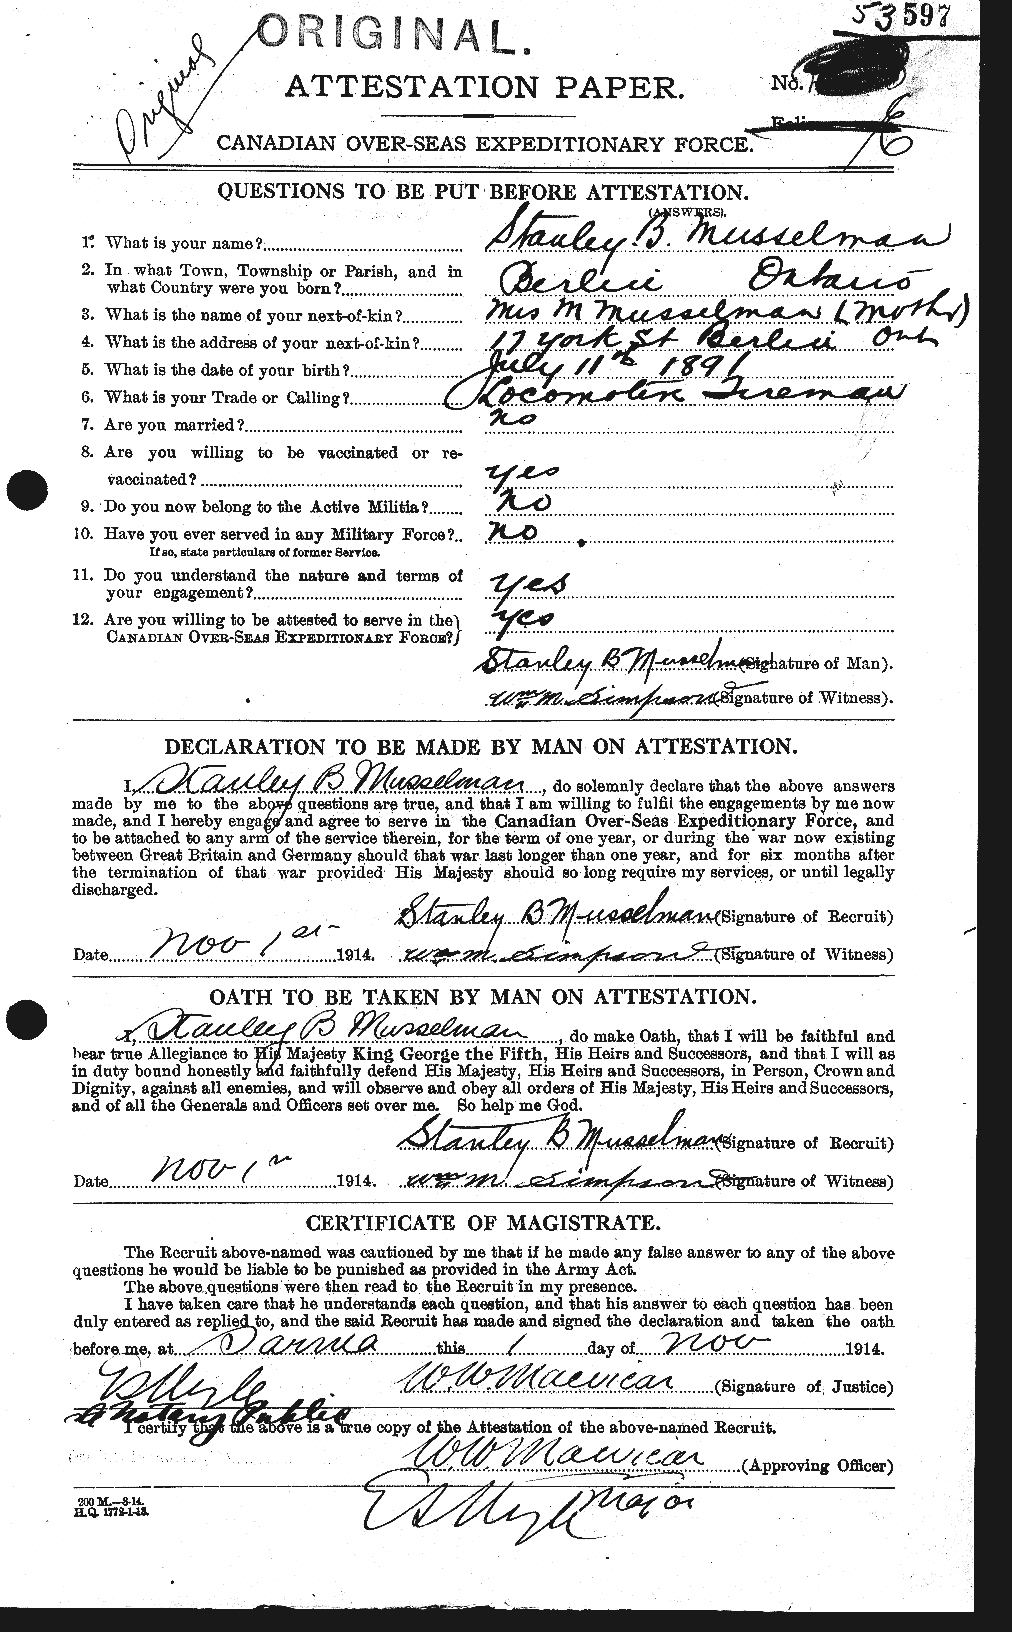 53597
ORIGINAL.
Original
ATTESTATION PAPER.
No.
CANADIAN OVER-SEAS EXPEDITIONARY FORCE.
QUESTIONS TO BE PUT BEFORE ATTESTATION.
(ANSWERS).
1. What is your name? Stanley. B. Musselman
2. In what Town, Township or Parish, and in
what Country were you born? Berlin Ontario
3. What is the name of your next-of-kin? Mrs M Musselman (Mother)
4. What is the address of your next-of-kin? 17 York St Berlin Ont
5. What is the date of your birth? July 11th 1891
6. What is your Trade or Calling? Locomotive Fireman
7. Are you married? no
8. Are you willing to be vaccinated or re-
vaccinated? yes
9. Do you now belong to the Active Militia? no
10. Have you ever served in any Military Force? no
If so, state particulars of former Service.
11. Do you understand the nature and terms of
your engagement? yes
12. Are you willing to be attested to serve in the
CANADIAN OVER-SEAS EXPEDITIONARY FORCE? yes
Stanley B Musselman (Signature of Man).
Wm M. Simpson (Signature of Witness).
DECLARATION TO BE MADE BY MAN ON ATTESTATION.
I, Stanley B Musselman, do solemnly declare that the above answers
made by me to the above questions are true, and that I am willing to fulfil the engagements by me now
made, and I hereby engage and agree to serve in the Canadian Over-Seas Expeditionary Force, and
to be attached to any arm of the service therein, for the term of one year, or during the war now existing
between Great Britain and Germany should that war last longer than one year, and for six months after
the termination of that war provided His Majesty should so long require my services, or until legally
discharged.
Stanley B Musselman (Signature of Recruit)
Date Nov 1st 1914. Wm M. Simpson (Signature of Witness)
OATH TO BE TAKEN BY MAN ON ATTESTATION.
I, Stanley B Musselman, do make Oath, that I will be faithful and
bear true Allegiance to His Majesty King George the Fifth, His Heirs and Successors, and that I will as
in duty bound honestly and faithfully defend His Majesty, His Heirs and Successors, in Person, Crown and
Dignity, against all enemies, and will observe and obey all orders of His Majesty, His Heirs and Successors,
and of all the Generals and Officers set over me. So help me God.
Stanley B Musselman (Signature of Recruit)
Date Nov 1st 1914. Wm M. Simpson (Signature of Witness)
CERTIFICATE OF MAGISTRATE.
The Recruit above-named was cautioned by me that if he made any false answer to any of the above
questions he would be liable to be punished as provided in the Army Act.
The above questions were then read to the Recruit in my presence.
I have taken care that he understands each question, and that his answer to each question has been
duly entered as replied to, and the said Recruit has made and signed the declaration and taken the oath
before me, at Sarnia this 1 day of Nov 1914.
W. W. Macvicar (Signature of Justice)
A Notary Public
I certify that the above is a true copy of the Attestation of the above-named Recruit.
W. W. Macvicar (Approving Officer)
Major
200 M.—8-14.
H.Q. 1772-1-13.